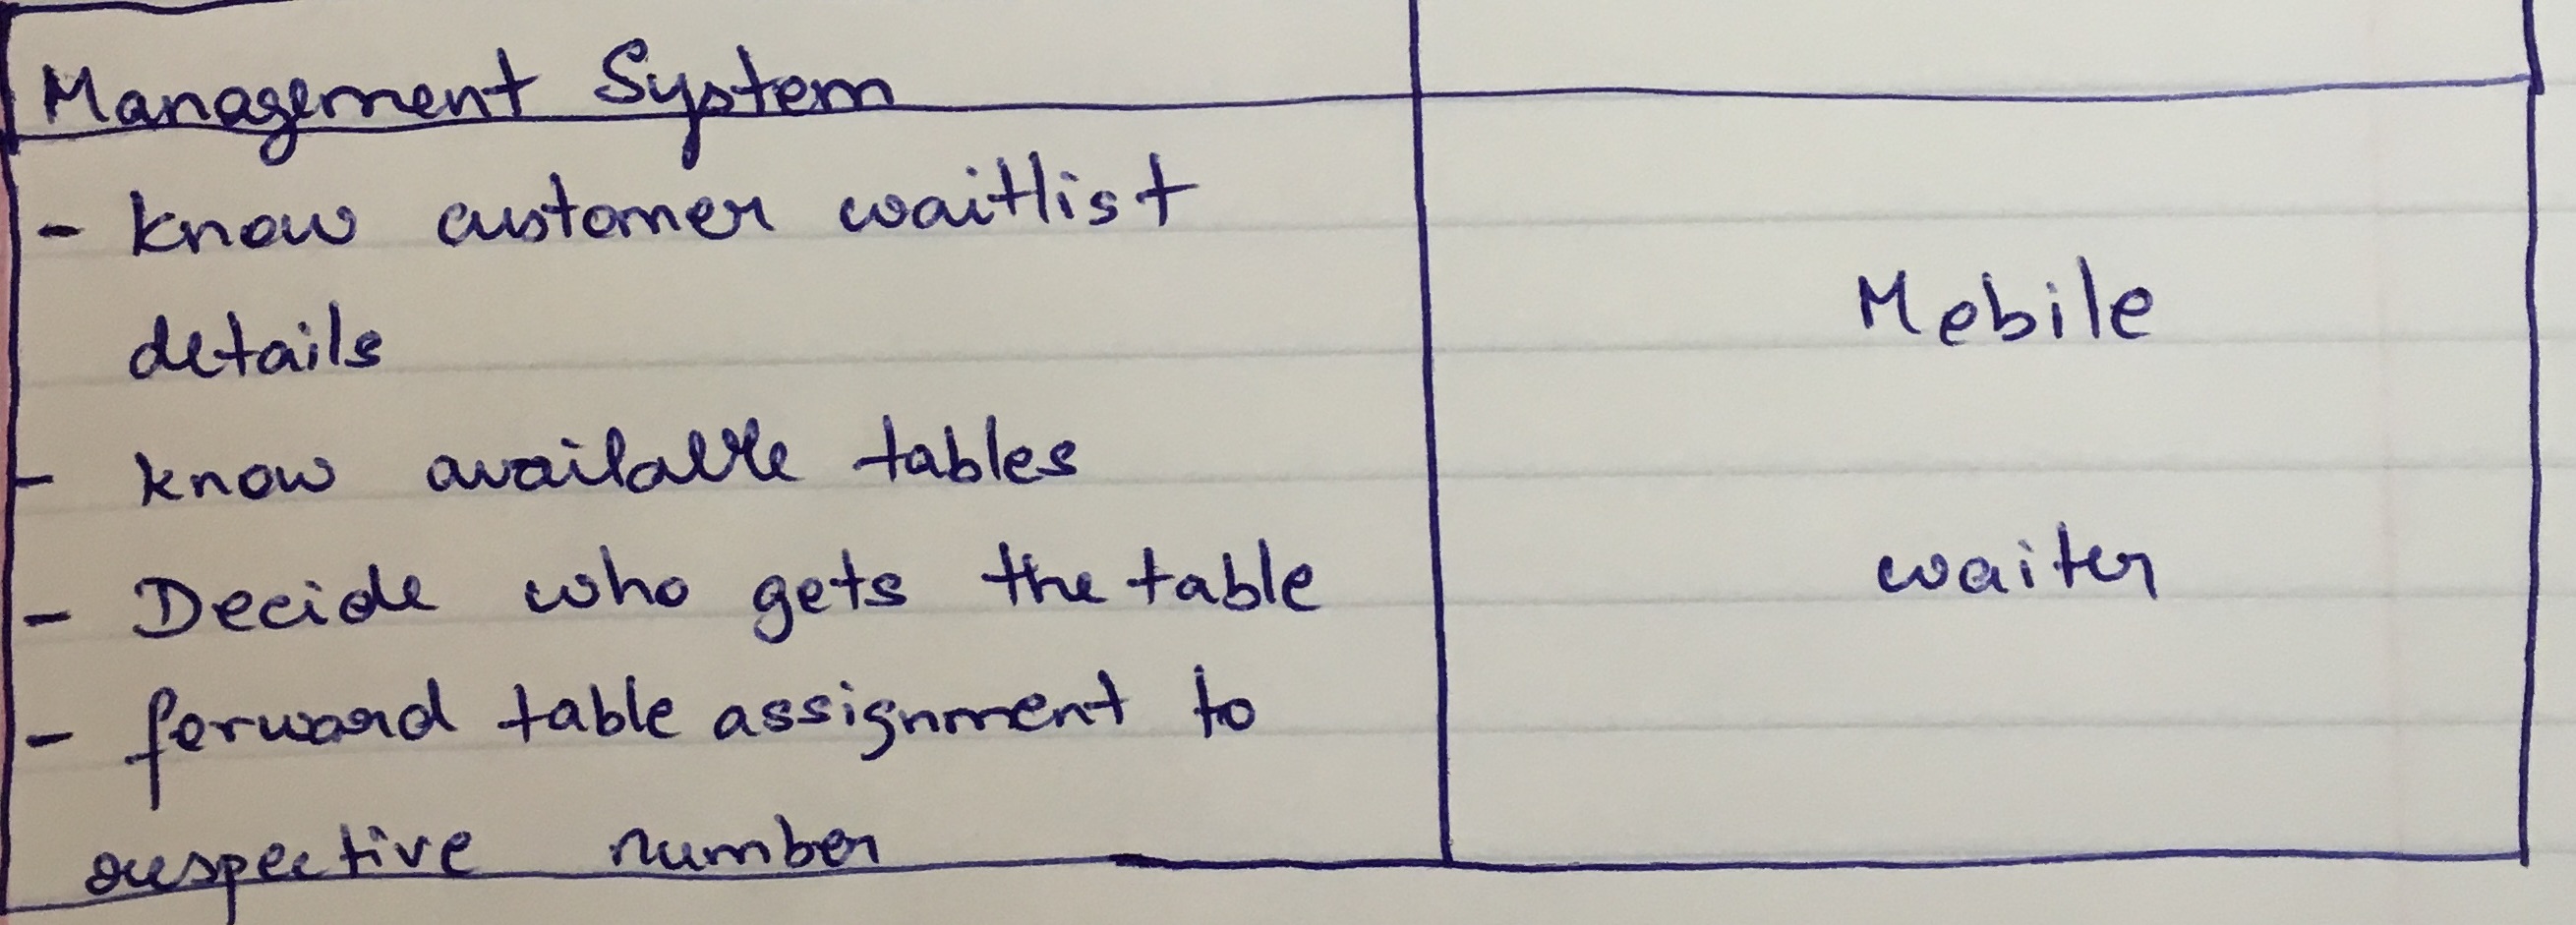 Management System
- know customer waitlist
details
Mobile
- know available tables
- Decide who gets the table
waiter
- forward table assignment to
respective number